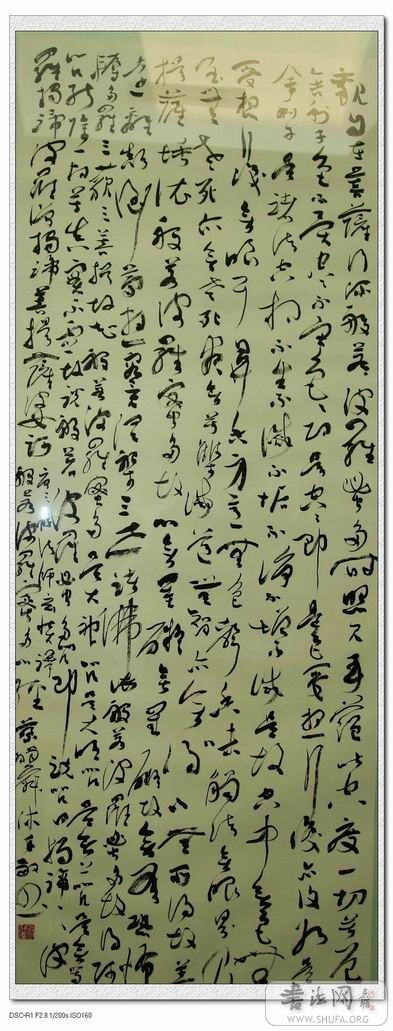 觀自在菩薩行深般若波羅蜜多時照見五蘊皆空度一切苦厄
舍利子色不異空空不異色色即是空空即是色受想行識亦復如是
舍利子是諸法空相不生不滅不垢不淨不增不減是故空中無色無
受想行識無眼耳鼻舌身意無色聲香味觸法無眼界乃
至無老死亦無老死盡無苦集滅道無智亦無得以無所得故菩
提薩埵依般若波羅蜜多故心無罣礙無罣礙故無有恐怖
遠離顛倒夢想究竟涅槃三世諸佛依般若波羅蜜多故得阿
耨多羅三藐三菩提故知般若波羅蜜多是大神咒是大明咒是無上咒是無等等
咒能除一切苦真實不虛故說般若波羅蜜多咒即說咒曰揭諦揭諦波
羅揭諦波羅僧揭諦菩提薩婆訶
唐三藏法師玄奘譯
般若波羅蜜多心經
沐手敬書
DSC-R1 F2.8 1/200s ISO160
書法网
WWW.SHUFA.ORG